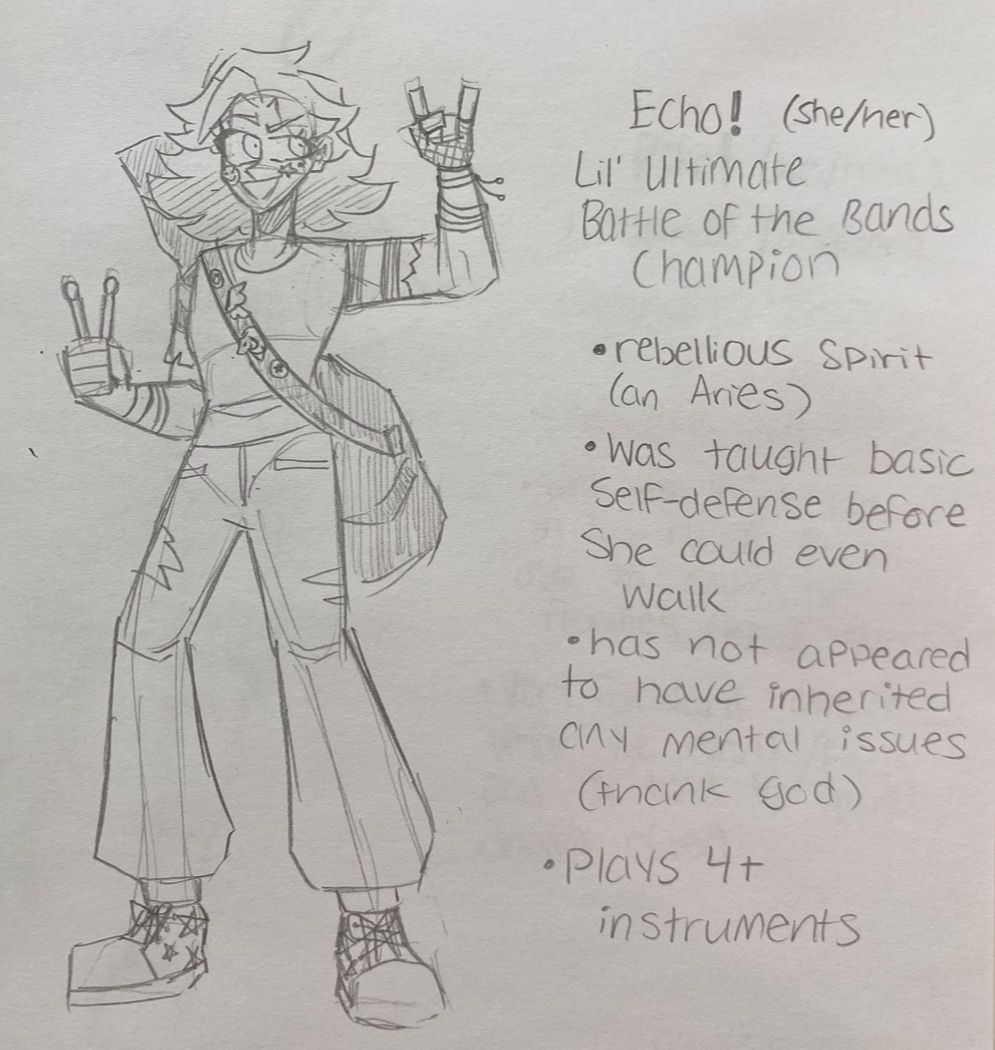 Echo! (she/her)
Lil' Ultimate
Battle of the Bands
Champion
•rebellious spirit
(an Aries)
•was taught basic
self-defense before
she could even
walk
•has not appeared
to have inherited
any mental issues
(thank god)
•plays 4+
instruments